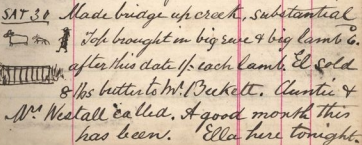 SAT 30 Made bridge up creek, substantial
Top brought in big ewe & big lamb 6.
after this date 1/- each lamb. El sold
8 lbs butter to Mr. Beckett. Auntie &
Mrs Westall called. A good month this
has been. Ella here tonight.